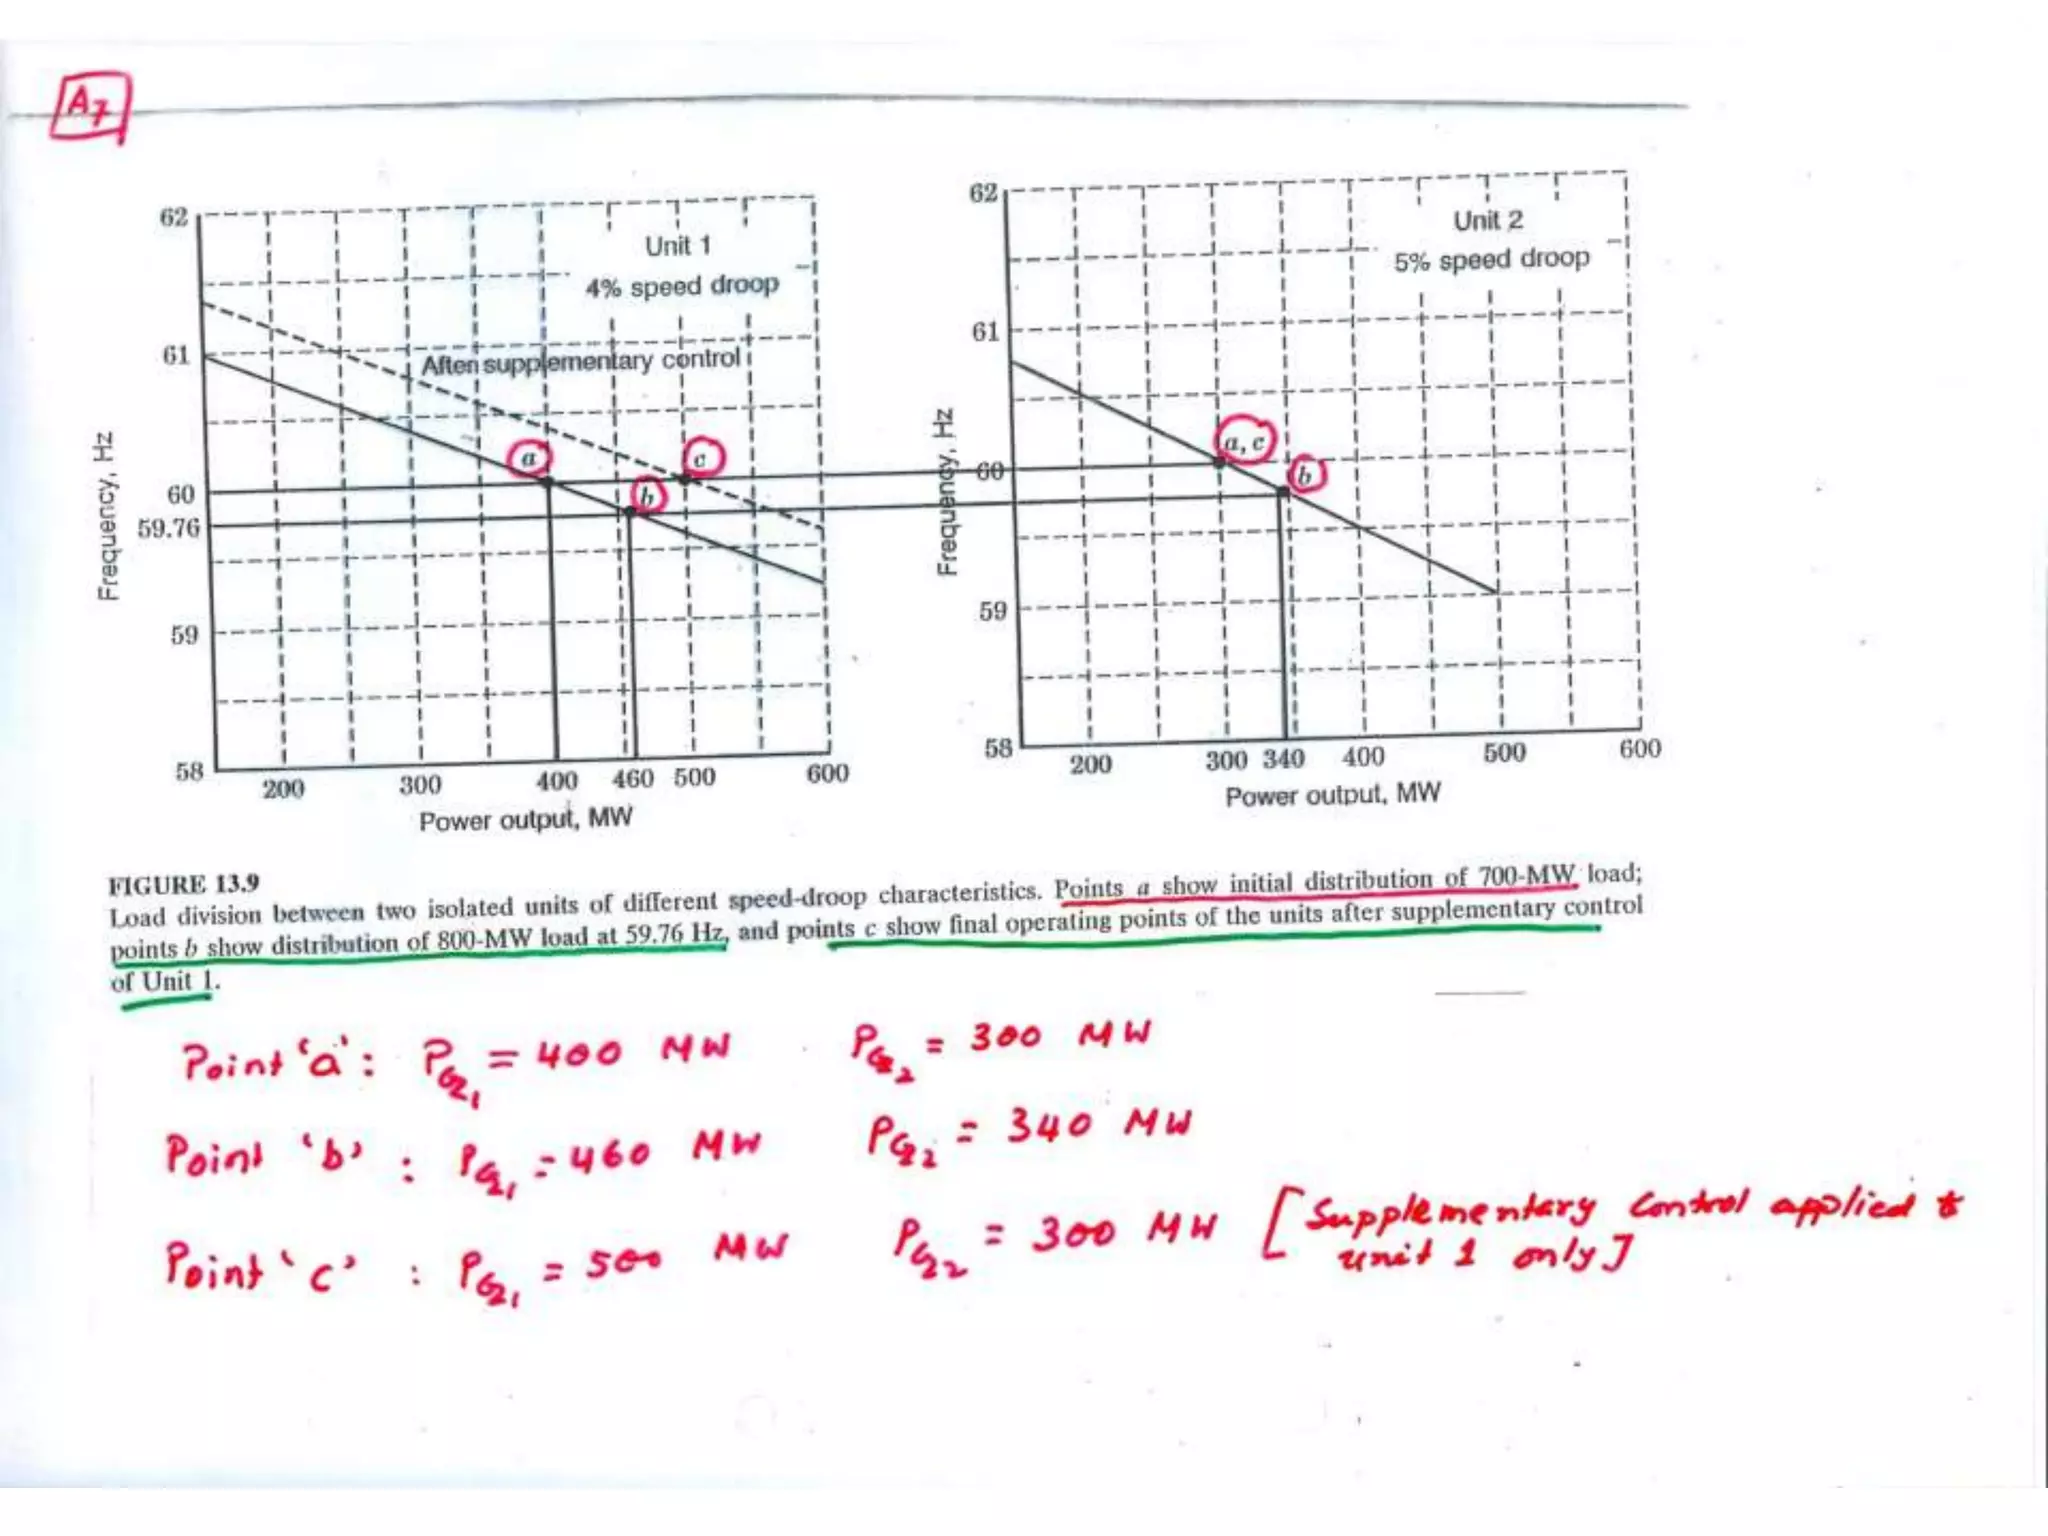 A7
62
61
60
59.76
59
58
Frequency, Hz
Unit 1
4% speed droop
After supplementary control
a
b
c
200 300 400 460 500 600
Power output, MW
62
61
60
59
58
Frequency, Hz
Unit 2
5% speed droop
a, c
b
200 300 340 400 500 600
Power output, MW
FIGURE 13.9
Load division between two isolated units of different speed-droop characteristics. Points a show initial distribution of 700-MW load;
points b show distribution of 800-MW load at 59.76 Hz, and points c show final operating points of the units after supplementary control
of Unit 1.
Point 'a' : PG1 = 400 MW PG2 = 300 MW
Point 'b' : PG1 = 460 MW PG2 = 340 MW
Point 'c' : PG1 = 500 MW PG2 = 300 MW [Supplementary control applied to
unit 1 only]